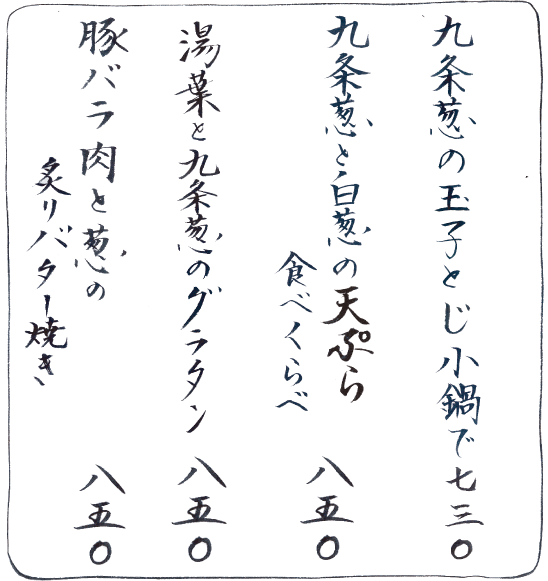 九条葱の玉子とじ小鍋で 七三〇
九条葱と白葱の天ぷら
食べくらべ 八五〇
湯葉と九条葱のグラタン 八五〇
豚バラ肉と葱の
炙りバター焼き 八五〇